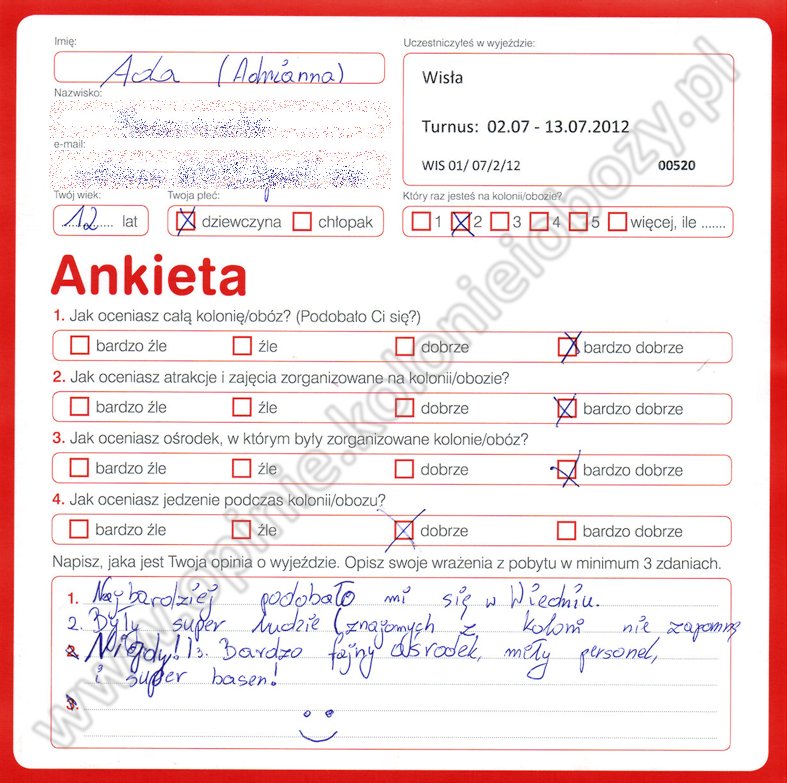 Imię:
Ada (Adrianna)
Uczestniczyłeś w wyjeździe:
Wisła
Turnus: 02.07 - 13.07.2012
WIS 01/ 07/2/12 00520
Nazwisko:
e-mail:
Twój wiek:
12 lat
Twoja płeć:
dziewczyna chłopak
Który raz jesteś na kolonii/obozie?
1 2 3 4 5 więcej, ile .......
Ankieta
1. Jak oceniasz całą kolonię/obóz? (Podobało Ci się?)
bardzo źle źle dobrze bardzo dobrze
2. Jak oceniasz atrakcje i zajęcia zorganizowane na kolonii/obozie?
bardzo źle źle dobrze bardzo dobrze
3. Jak oceniasz ośrodek, w którym były zorganizowane kolonie/obóz?
bardzo źle źle dobrze bardzo dobrze
4. Jak oceniasz jedzenie podczas kolonii/obozu?
bardzo źle źle dobrze bardzo dobrze
Napisz, jaka jest Twoja opinia o wyjeździe. Opisz swoje wrażenia z pobytu w minimum 3 zdaniach.
1. Najbardziej podobało mi się w Wiedniu.
2. Były super ludzie (znajomych z koloni nie zapomnę
Nigdy!) 3. Bardzo fajny ośrodek, miły personel,
i super basen!
3.
www.opinie.kolonieiobozy.pl